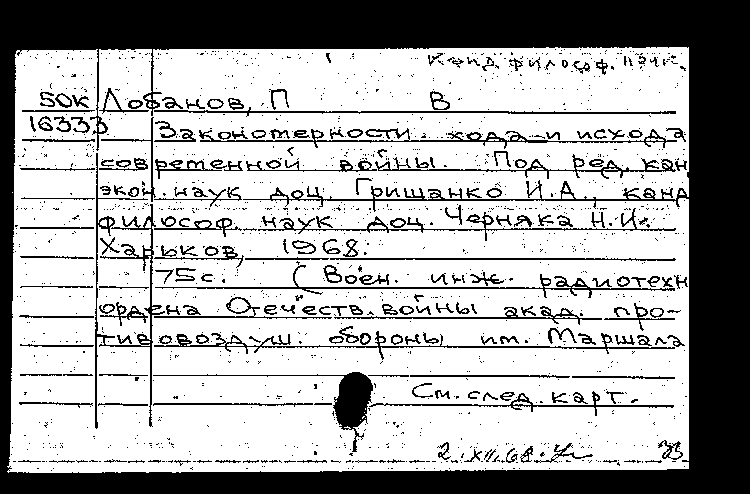 Канд философ. наук.
50К Лобанов, П В
16333 Закономерности хода и исхода
современной войны. Под ред. кан
экон. наук доц. Грищанко И.А., канд
философ. наук доц. Черняка Н.И.
Харьков, 1968.
75с. (Воен. инж. радиотехн
ордена Отечеств. войны акад. про-
тивовоздуш. обороны им. Маршала
См. след. карт.
2.XII.68.